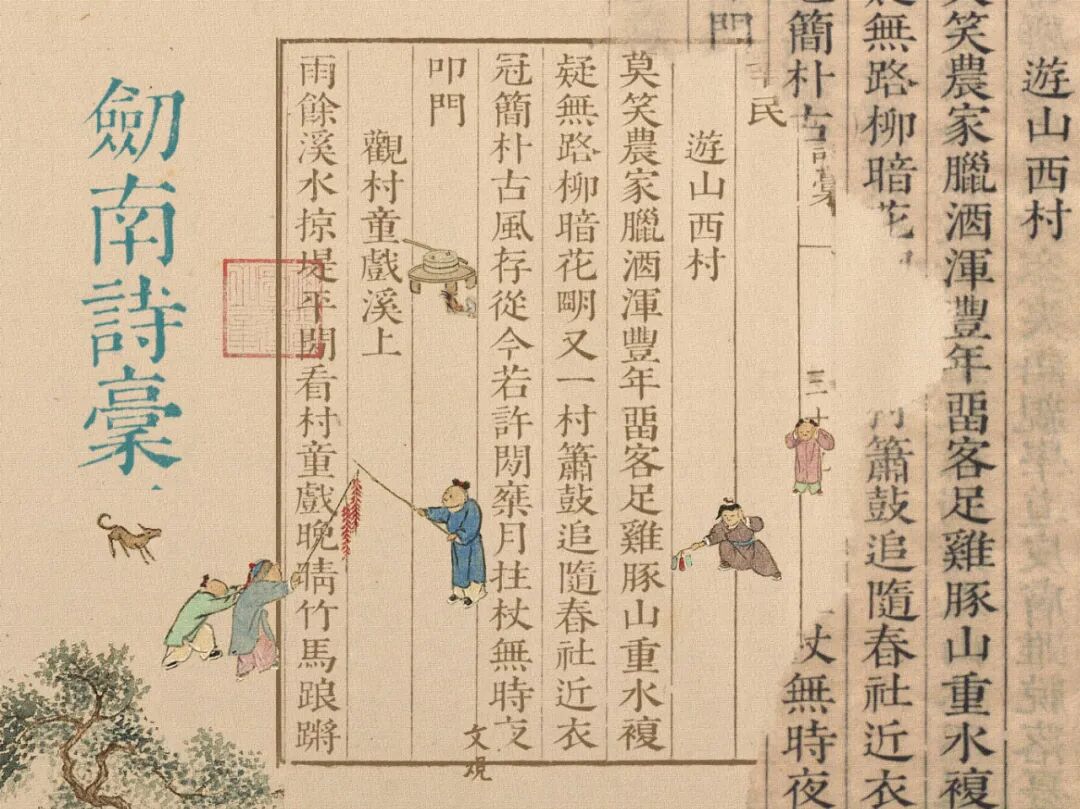 遊山西村
笑農家臘酒渾豐年畱客足雞豚山重水複
無路柳暗花
簫鼓追隨春社近衣
簡朴古
杖無時夜
門
民
詩稾
遊山西村
莫笑農家臘酒渾豐年畱客足雞豚山重水複
疑無路柳暗花朙又一村簫鼓追隨春社近衣
冠簡朴古風存從今若許閒椉月拄杖無時夜
叩門
觀村童戲溪上
雨餘溪水掠堤平閒看村童戲晚晴竹馬踉蹡
劒南詩稾
文观